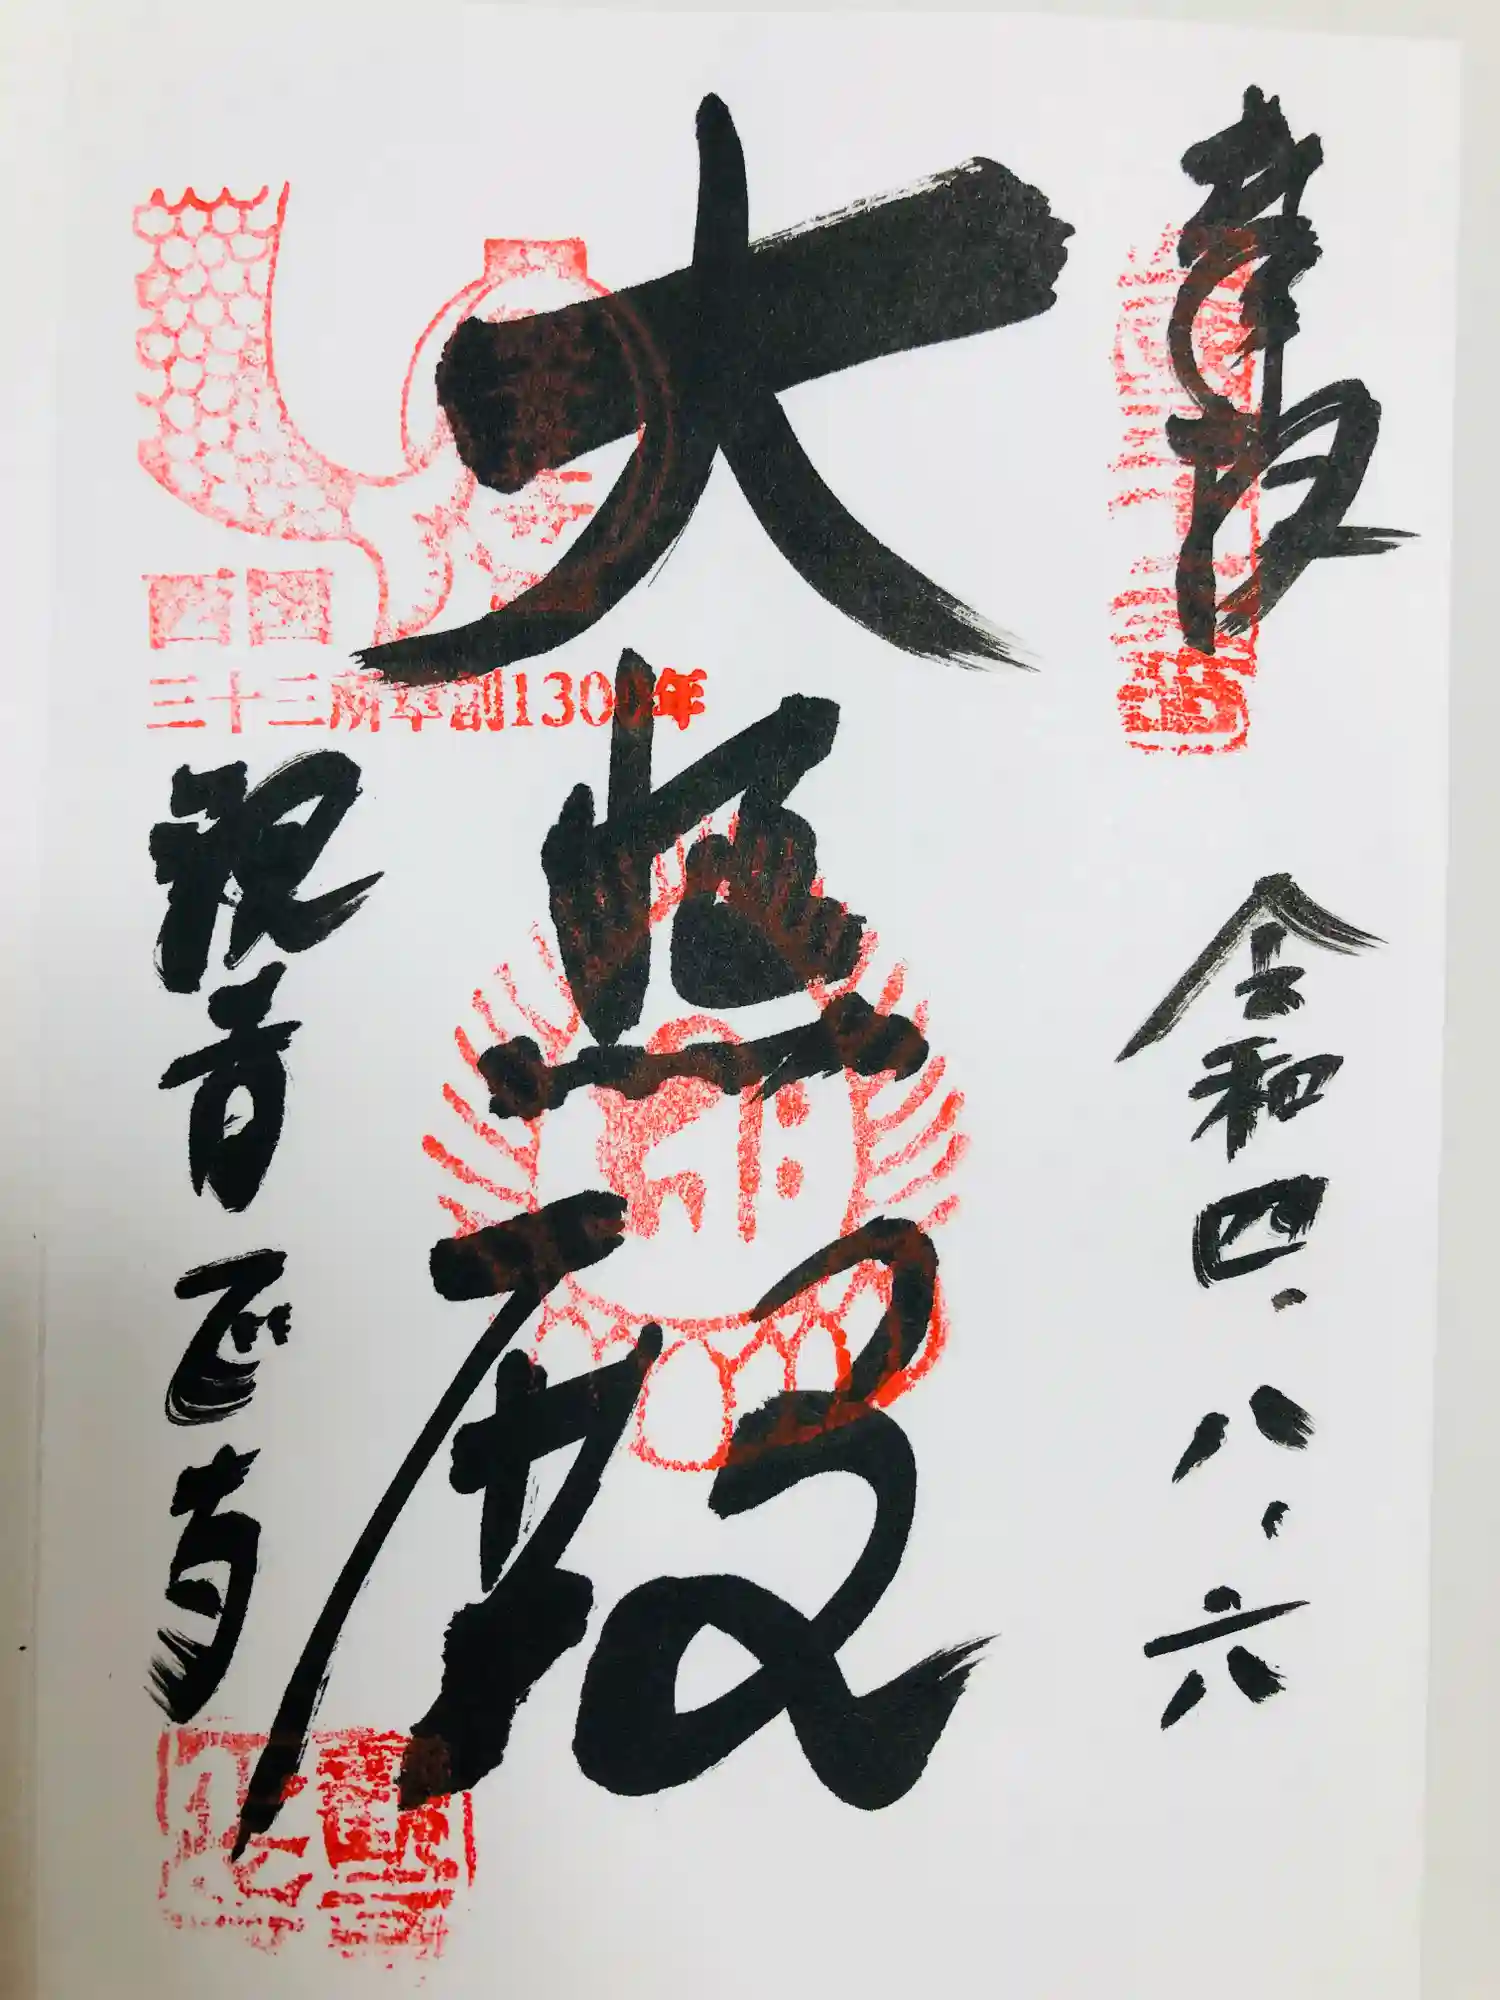 奉拝
令和四.八.六
大悲殿
西国
三十三所草創1300年
観音正寺